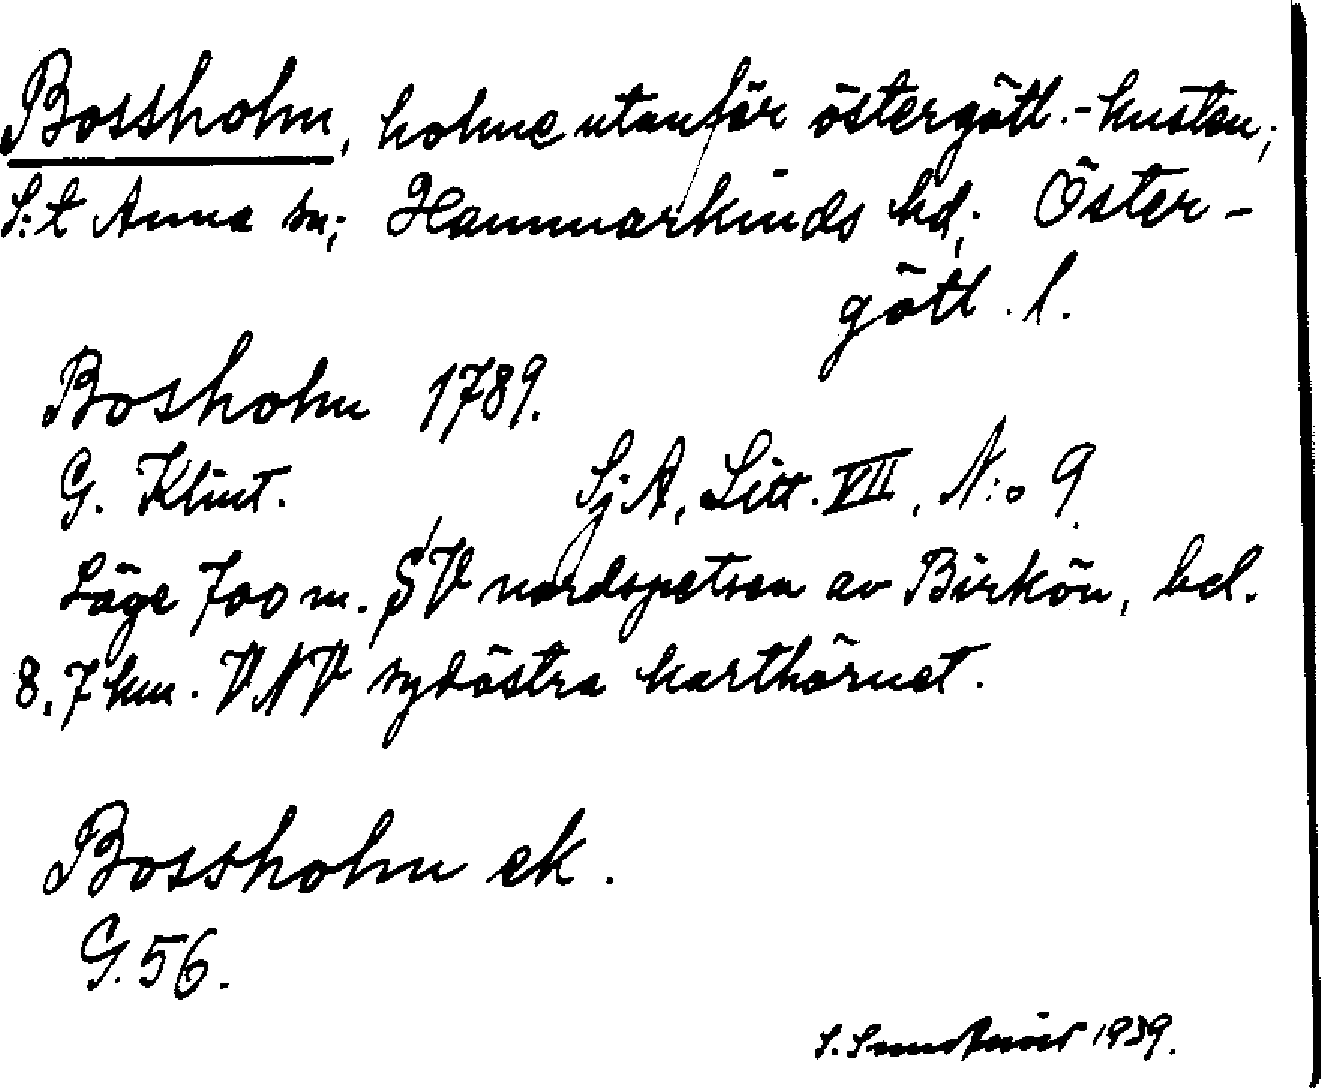 Bossholm, holme utanför östergötl.-kusten;
S:t Anna sn; Hammarkinds hd; Öster-
götl. l.
Bosholm 1789.
G. Klint. Sj A, Litt. VII, N:o 9
Läge 700 m. SV nordspetsen av Birkön, bel.
8,7 km. VNV sydöstra karthörnet.
Bossholm ek.
G. 56.
S. 1939.